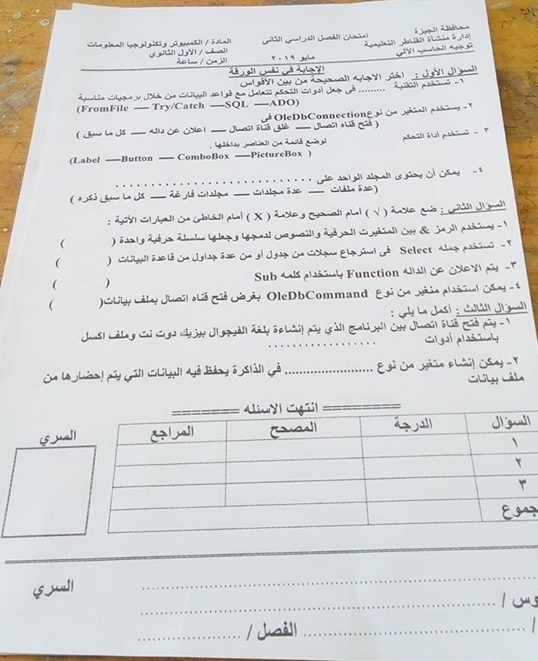 محافظة الجيزة
إدارة منشأة القناطر التعليمية
توجيه الحاسب الآلي
امتحان الفصل الدراسي الثانى
مايو ٢٠١٩
المادة / الكمبيوتر وتكنولوجيا المعلومات
الصف / الأول الثانوي
الزمن / ساعة
الاجابة في نفس الورقة
السؤال الأول : اختر الاجابه الصحيحة من بين الأقواس
١- تستخدم التقنية ......... فى جعل أدوات التحكم تتعامل مع قواعد البيانات من خلال برمجيات مناسبة
(FromFile — Try/Catch —SQL —ADO)
٢- يستخدم المتغير من نوع OleDbConnection فى
( فتح قناه اتصال — غلق قناة اتصال — اعلان عن داله — كل ما سبق )
٣ - تستخدم أداة التحكم لوضع قائمة من العناصر بداخلها .
(Label —Button — ComboBox —PictureBox )
٤- يمكن أن يحتوى المجلد الواحد على ..............................
(عدة ملفات — عدة مجلدات — مجلدات فارغة — كل ما سبق ذكره )
السؤال الثانى : ضع علامة ( √ ) أمام الصحيح وعلامة ( X ) أمام الخاطئ من العبارات الآتية :
١- يستخدم الرمز & بين المتغيرت الحرفية والنصوص لدمجها وجعلها سلسلة حرفية واحدة ( )
٢- تستخدم جمله Select فى استرجاع سجلات من جدول أو من عدة جداول من قاعدة البيانات ( )
٣- يتم الاعلان عن الداله Function باستخدام كلمه Sub ( )
٤- يمكن استخدام متغير من نوع OleDbCommand بغرض فتح قناه اتصال بملف بيانات( )
السؤال الثالث : أكمل ما يلي :
١- يتم فتح قناة اتصال بين البرنامج الذي يتم إنشاءة بلغة الفيجوال بيزيك دوت نت وملف اكسل
باستخدام أدوات ..................
٢- يمكن إنشاء متغير من نوع ....................... في الذاكرة يحفظ فيه البيانات التي يتم إحضارها من
ملف بيانات
======== انتهت الاسئله =======
السؤال الدرجة المصحح المراجع
١
٢
٣
جموع
السري
السري
وس /
/ الفصل /